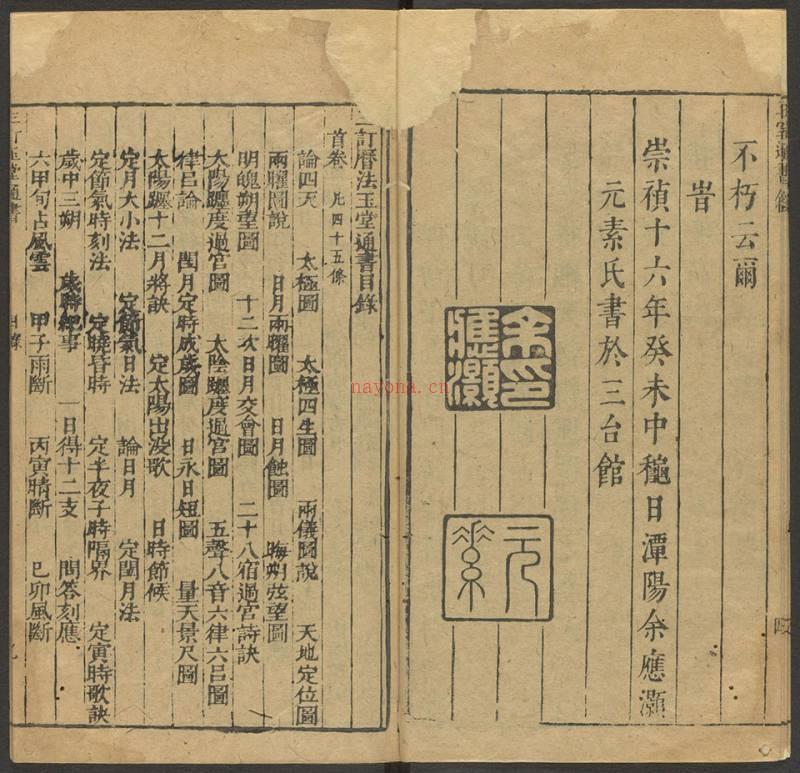 不朽云爾
旹
崇禎十六年癸未中穐日潭陽余應灝
元素氏書於三台館
余印應灝
元素
訂曆法玉堂通書目錄
首卷 凡四十五條
論四天 太極圖 太極四生圖 兩儀圖說 天地定位圖
兩曜圖說 日月兩曜圖 日月蝕圖 晦朔弦望圖
明魄朔望圖 十二次日月交會圖 二十八宿過宮詩訣
太陽躔度過宮圖 太陰躔度過宮圖 五聲八音六律六呂圖
律呂論 閏月定時成歲圖 日永日短圖 量天景尺圖
太陽躔十二月將訣 定太陽出没歌 日時節候
定月大小法 定節氣日法 論日月 定閏月法
定節氣時刻法 定曉昏時 定半夜子時隔界 定寅時歌訣
歲中三朔 歲時紀事 一日得十二支 問答刻應
六甲旬占風雲 甲子雨斷 丙寅晴斷 巳卯風斷
三訂玉堂通書 目錄
nayona.cn